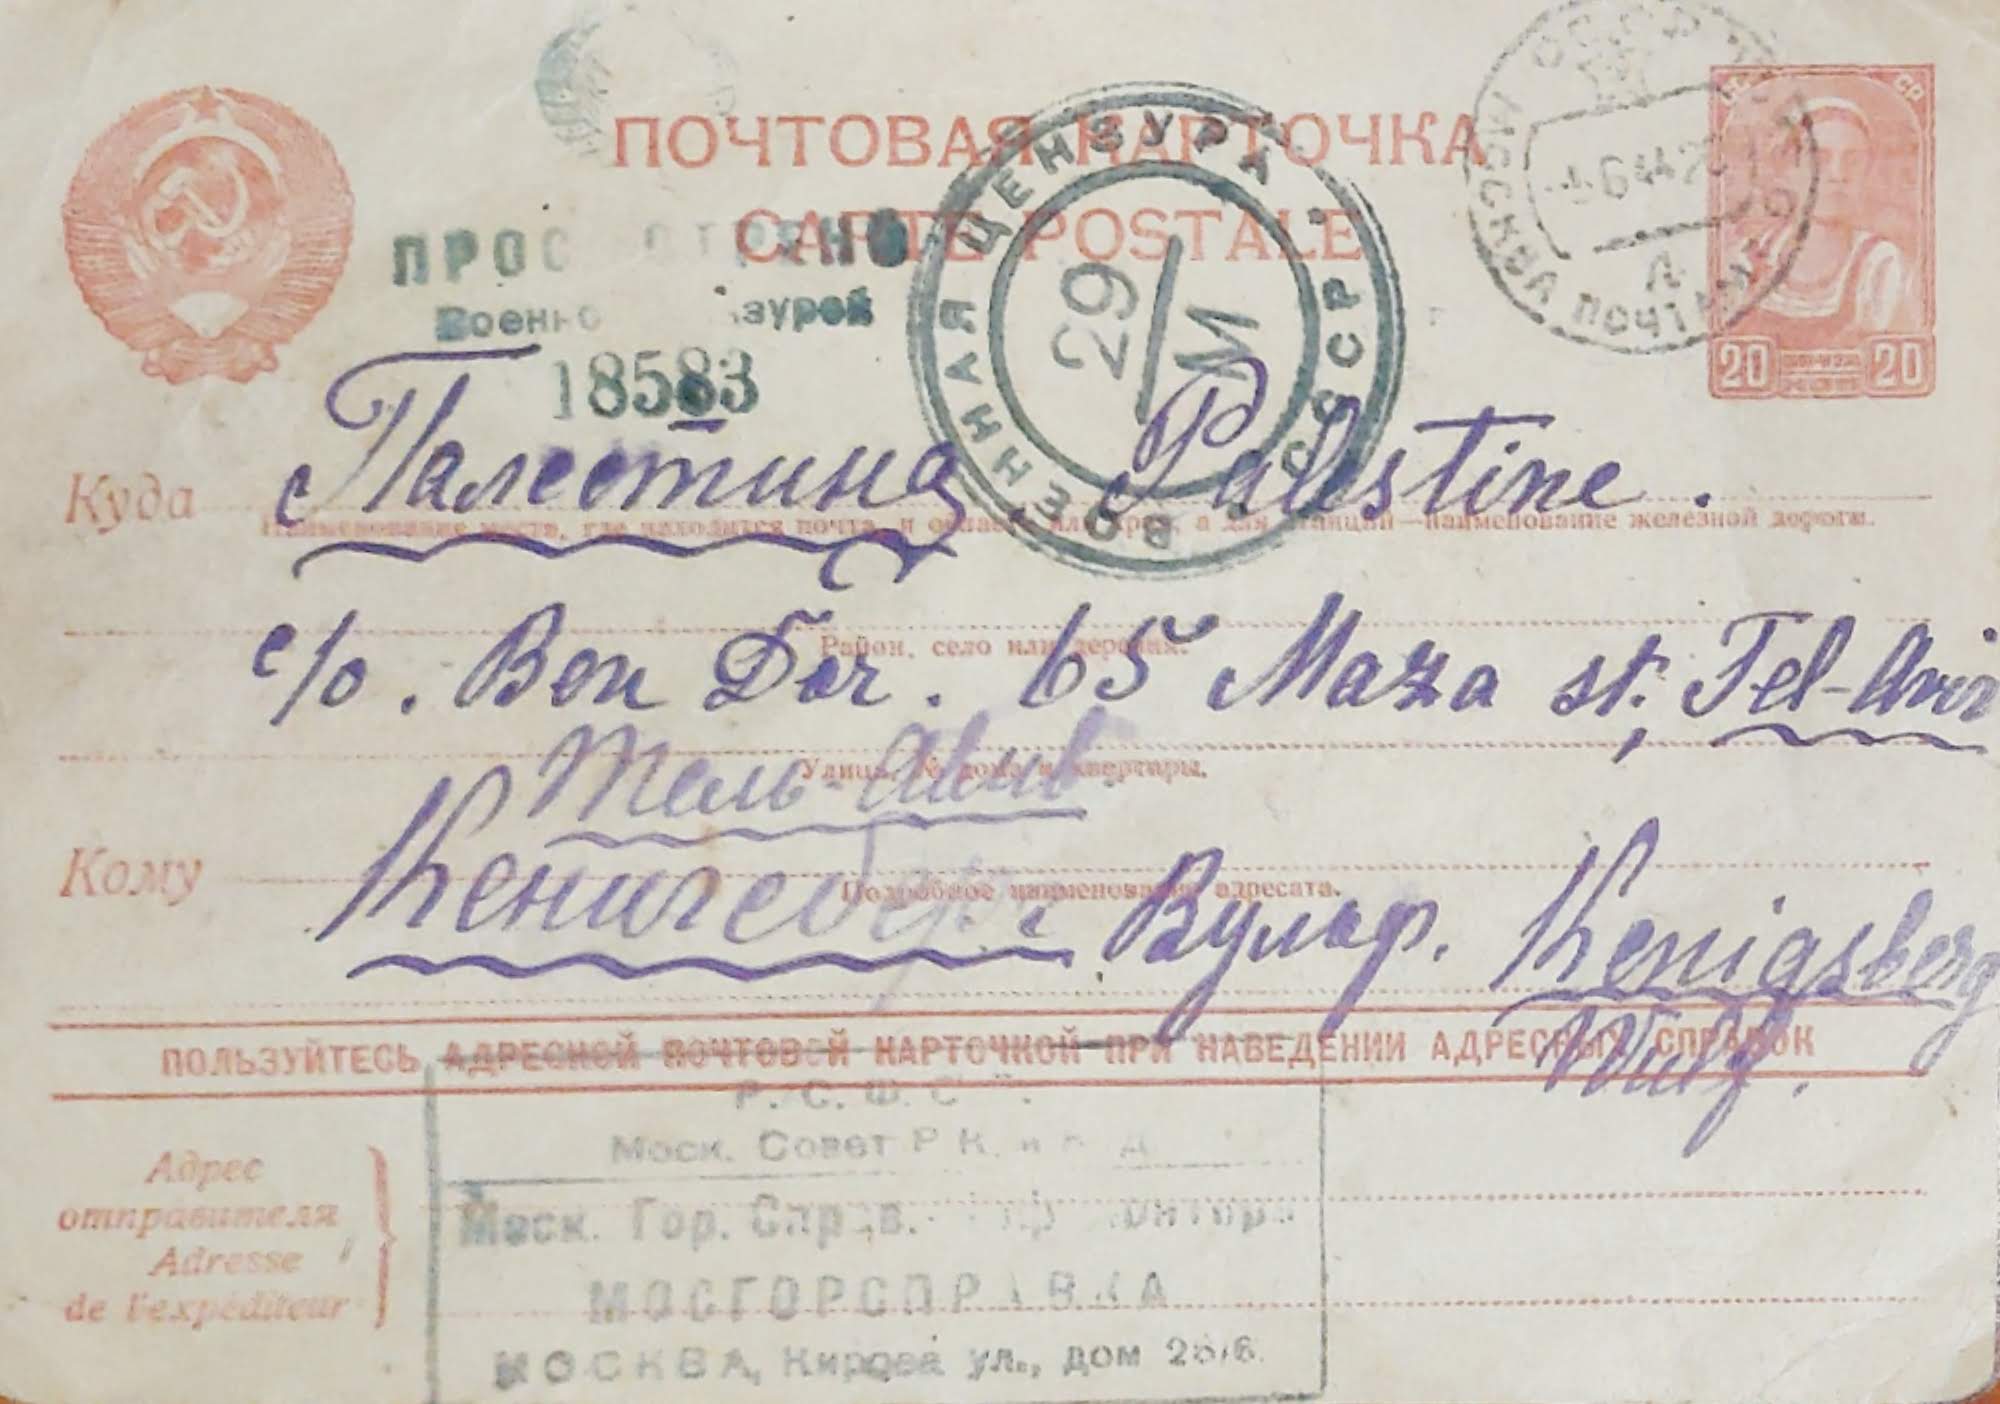 ПОЧТОВАЯ КАРТОЧКА
CARTE POSTALE
СССР
20 20
КОП
ВОЕННАЯ ЦЕНЗУРА СССР
29/М
МОСКВА ПОЧТАМТ
6 44
ПРОСМОТРЕНО
Военной Цензурой
18583
Куда Палестина. Palestine.
Наименование места, где находится почта, и области или края, а для станций—наименование железной дороги.
c/o. Ben Dor. 65 Maza st., Tel-Aviv
Район, село или деревня.
Тель-Авив
Улица, № дома и квартиры.
Кому Кенигсберг Вульф. Kenigsberg
Wulf.
Подробное наименование адресата.
ПОЛЬЗУЙТЕСЬ АДРЕСНОЙ ПОЧТОВОЙ КАРТОЧКОЙ ПРИ НАВЕДЕНИИ АДРЕСНЫХ СПРАВОК
Адрес
отправителя
Adresse
de l'expéditeur
Р. С. Ф. С.
Моск. Совет Р К. и Д
Моск. Гор. Справ. контора
МОСГОРСПРАВКА
МОСКВА, Кирова ул., дом